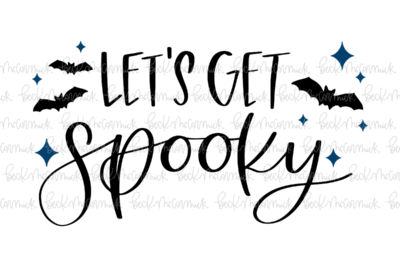 LET'S GET
spooky